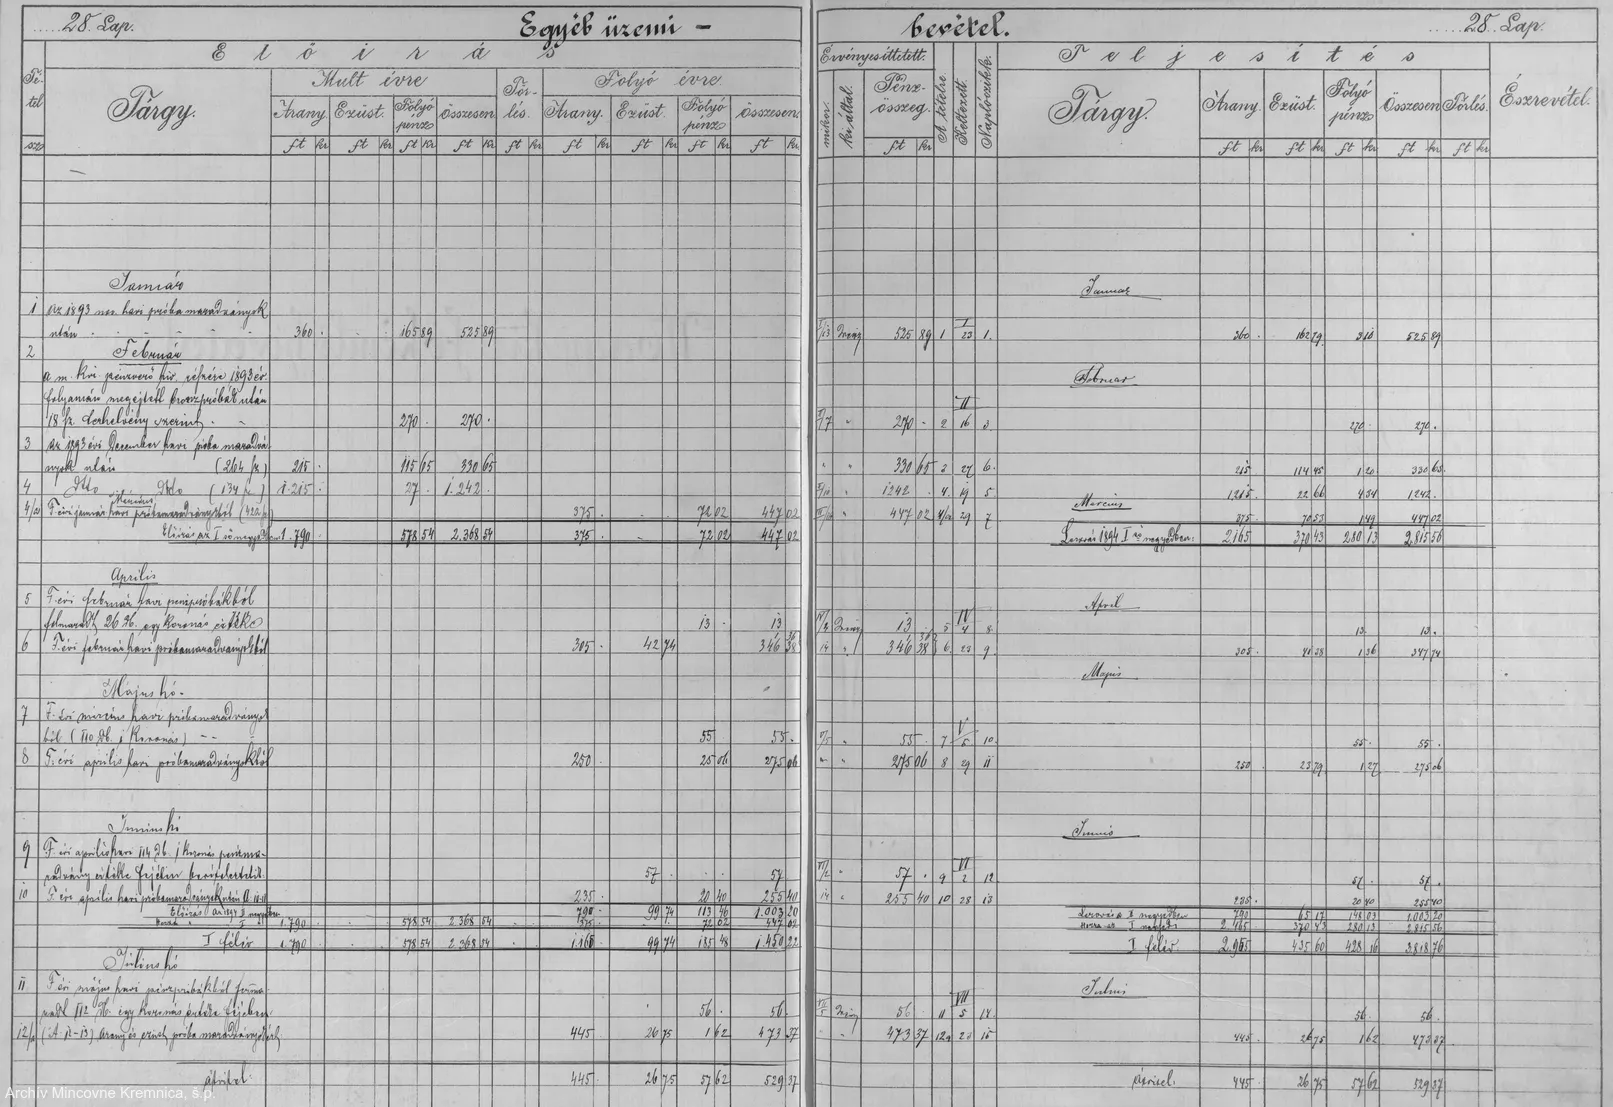 28. Lap.
Egyéb üzemi –
Előirás
Té-
tel
szá
Tárgy.
Mult évre
Tör-
lés.
Folyó évre.
Arany. Ezüst. Folyó pénz Összesen.
Arany. Ezüst. Folyó pénz Összesen
ft kr ft kr ft kr ft kr ft kr ft kr ft kr ft kr ft kr
Január
1 az 1893 nov. havi próbamaradványok
után 360 · 165 89 525 89
2 Február
a m. kir. pénzverő hiv. részére 1893 év
folyamán megejtett
18 sz. szerint 270 · 270 ·
3 az 1893 évi December havi próba maradvá-
nyok után (264 sz) 215 · 115 65 330 65
4 Dtto Dtto (134 sz) 1.215 · 27 · 1.242 ·
Március
4/a F. évi január havi próbamaradványokból 375 · 72 02 447 02
Előirás az I ső negyedben 1.790 578 54 2.368 54 375 – 72 02 447 02
Április
5 F. évi február havi pénzpróbákból
26 db. egy koronás 13 · 13
6 F. évi február havi próbamaradványokból 305 · 42 74 346 38
Május hó.
7 F. évi március havi próbamaradványok-
ból (110 db. 1 koronás) 55 55.
8 F. évi április havi próbamaradványokból 250 · 25 06 275 06
Junius hó
9 F. évi április havi 114 db. 1 koronás
57 · 57
10 F. évi április havi próbamaradványok után 235 · 20 40 255 40
Előirás a II negyedben 790 99 74 113 46 1.003 20
I 1.790 578 54 2.368 54 375 72 02 447 02
I félév 1.790 578 54 2.368 54 1.165 99 74 185 48 1.450 22
Július hó
11 F. évi május havi pénzpróbákból
112 db. egy koronás 56 · 56 ·
12/a arany és ezüst próbamaradványokért 445 · 26 75 1 62 473 37
Átvitel: 445 · 26 75 57 62 529 37
bevétel.
28. Lap.
Érvényesíttetett.
mikor. ki által. Pénz-összeg. A tételre. Keltezett. Naplószikk.
Teljesités
Tárgy.
Arany. Ezüst. Folyó pénz Összesen Törlés.
Észrevétel.
ft kr ft kr ft kr ft kr ft kr ft kr
Januar
I/13 525 89 1 I/23 1. 360 · 162 79 3 10 525 89
Februar
270 – 2 II/16 3. 270 · 270 ·
330 65 3 27 6. 215 114 45 1 20 330 65
1242 · 4. 19 5 1215 · 22 66 4 34 1242 ·
Március
447 02 4/a 29 7 375 · 70 53 1 49 447 02
Lerovás 1894 I ső negyedben: 2.165 370 43 280 13 2.815 56
April
13 · 5 IV/4 8. 13 · 13 ·
14 346 38 6. 23 9. 305 · 41 38 1 36 347 74
Május
V/5 55 · 7 V/5 10. 55 · 55 ·
275 06 8 29 11 250 · 23 79 1 27 275 06
Junió
VI/2 57 · 9 VI/2 12. 57 · 57 ·
14 255 40 10 28 13 235 · 20 40 255 40
Lerovás a II negyedben 790 65 17 148 03 1.003 20
I negyed: 2.165 370 43 280 13 2.815 56
I félév. 2.955 435 60 428 16 3.818 76
Julius
VII/5 56 · 11 VII/5 14. 56 · 56 ·
473 37 12a 23 15 445 · 26 75 1 62 473 37
Átvitel. 445 · 26 75 57 62 529 37
Archív Mincovne Kremnica, š.p.